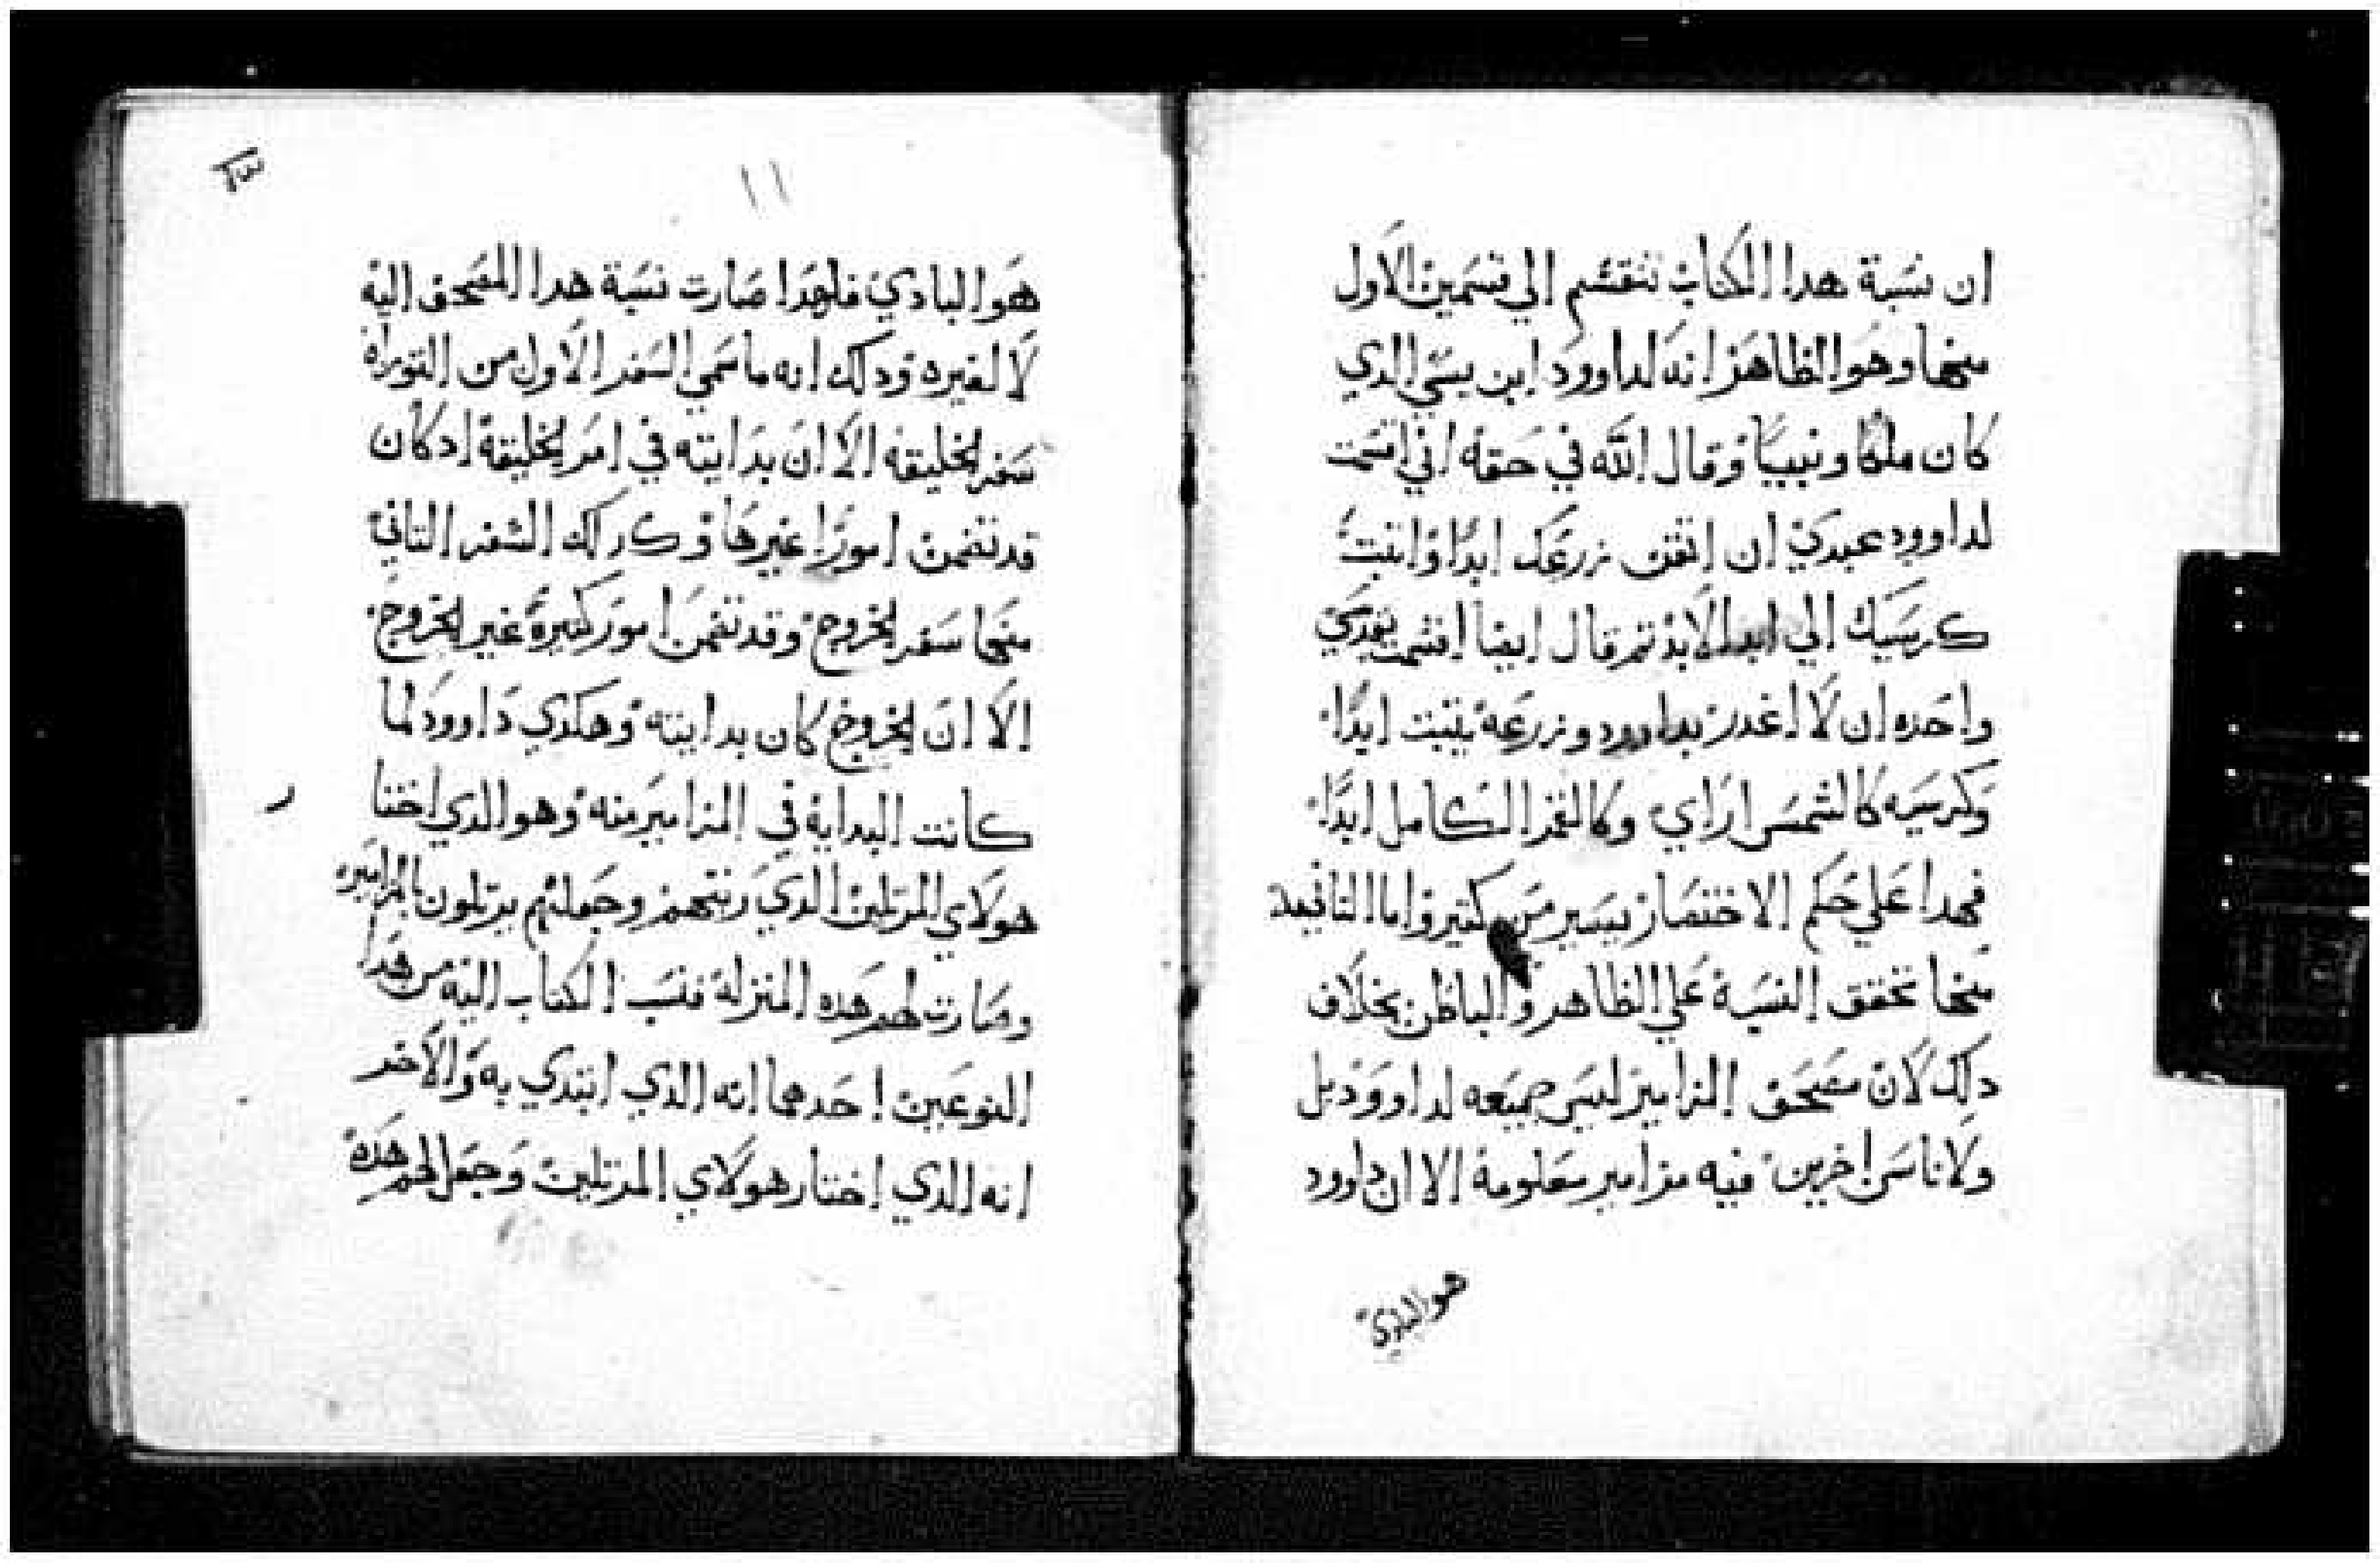 ان نسبة هدا الكتاب تنقسم الي قسمين الاول
منها وهو الظاهر انه لداوود ابن يسي الدي
كان ملكا ونبيا وقال الله في حقه اني اقسمت
لداوود عبدي ان اتقن زرعك ابدا وابتت
كرسيك الي ابد الابد تم قال ايضا اقسمت بقدسي
واحده ان لا اغدر بداوود وزرعه يتبت ابدا
وكرسيه كالشمس ازاي وكالقمر الكامل ابدا
فهدا علي حكم الاختصار يسير من كتير واما التانية
منها تحقق النسبة علي الظاهر والباطن بخلاف
دلك لان مصحف المزامير ليس جميعه لداوود بل
ولاناس اخرين فيه مزامير معلومة الا ان داوود
هو البادي
١١
هو البادي فلهدا صارت نسبة هدا المصحف اليه
لا لغيره ودلك انه ما سمي السفر الاول من التوراه
سفر الخليقه الا ان بدايته في امر الخليقة ادكان
قد تضمن امورا غيرها وكدلك السفر التاني
منها سفر الخروج وقد تضمن امور كتيرة غير الخروج
الا ان الخروج كان بدايته وهكدي داوود لما
كانت البداية في المزامير منه وهو الدي اختا
ر
هولاي المرتلين الدي رتبهم وجعلهم يرتلون بالمزامير
وصارت لهم هده المنزلة فنسب الكتاب اليه من هدا
النوعين احدهما انه الدي ابتدي به والاخر
انه الدي اختار هولاي المرتلين وجعل لهم هده